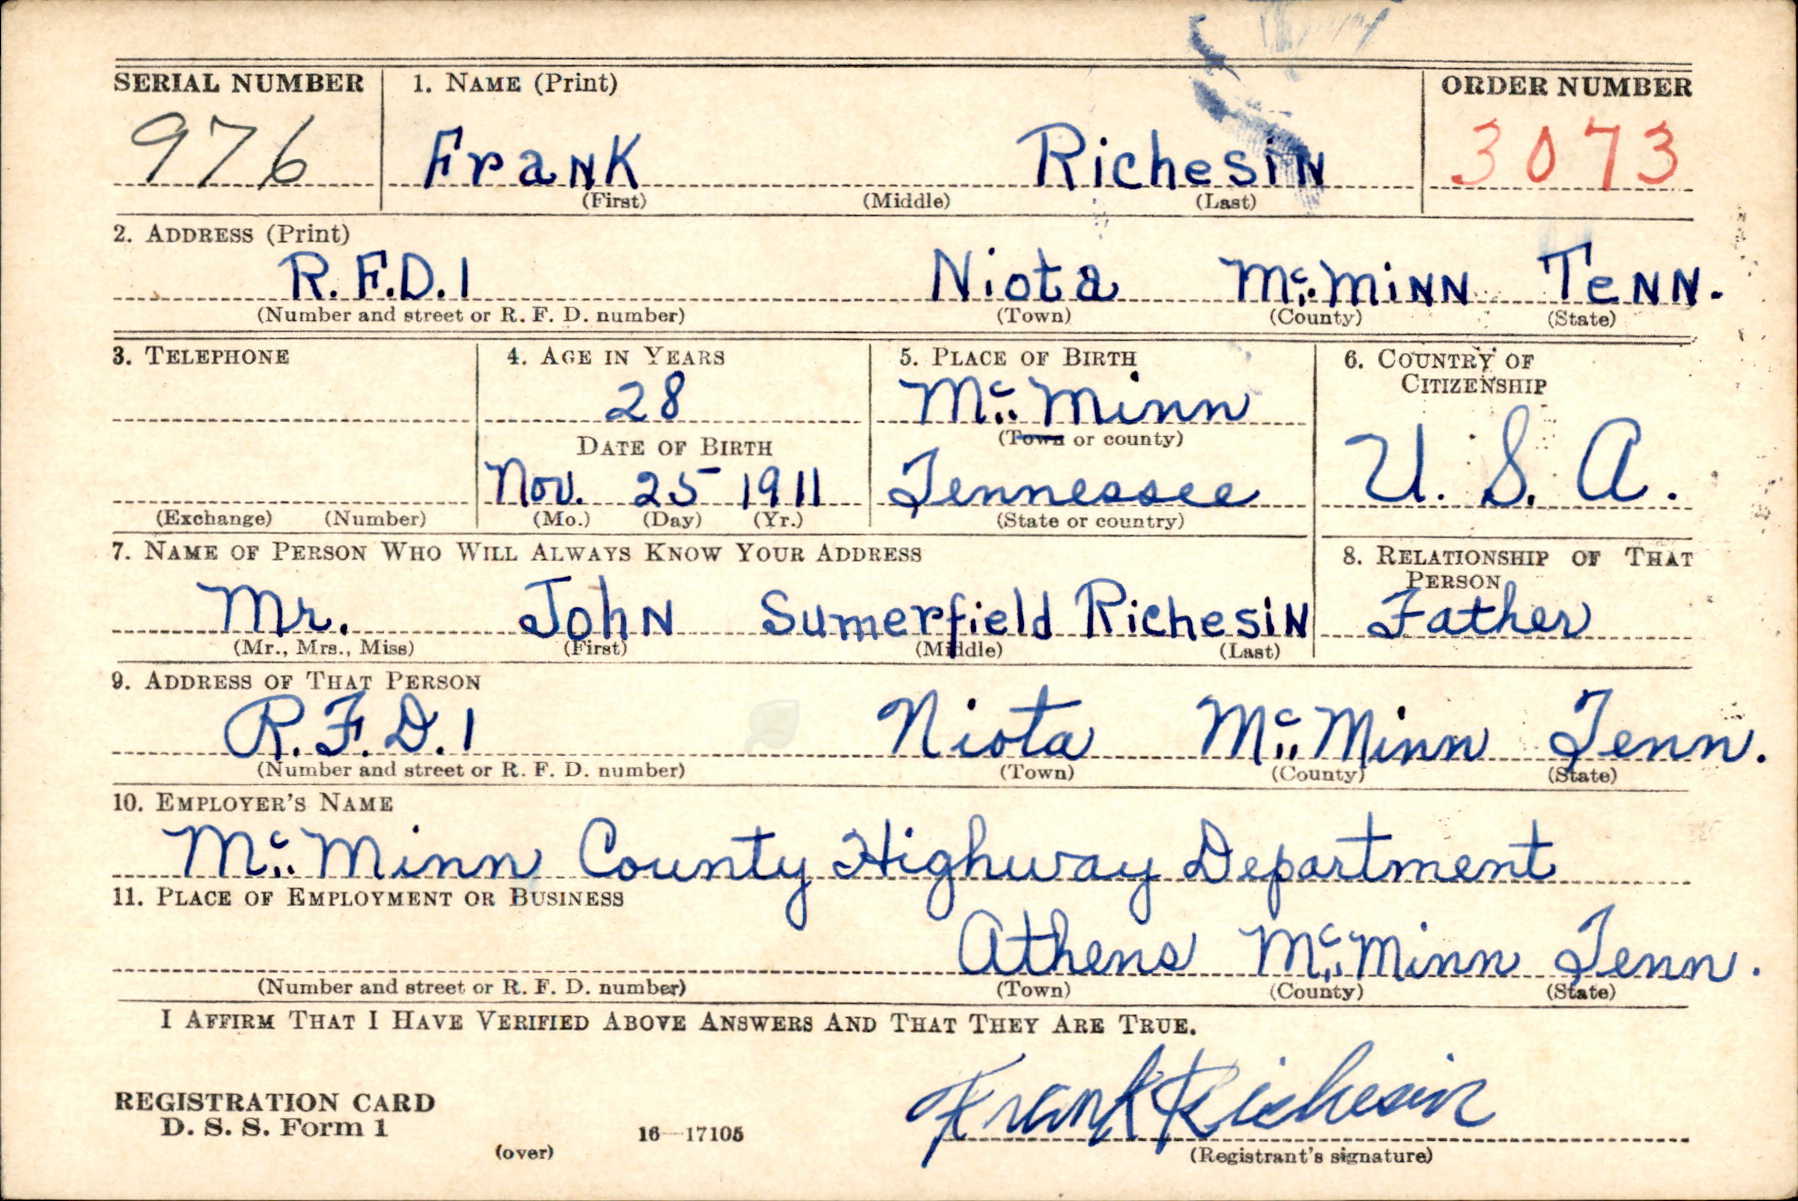 SERIAL NUMBER 1. NAME (Print) ORDER NUMBER
976 Frank Richesin 3073
(First) (Middle) (Last)
2. ADDRESS (Print)
R.F.D. 1 Niota Mc.Minn Tenn.
(Number and street or R. F. D. number) (Town) (County) (State)
3. TELEPHONE 4. AGE IN YEARS 5. PLACE OF BIRTH 6. COUNTRY OF CITIZENSHIP
28 Mc.Minn
DATE OF BIRTH (Town or county)
Nov. 25 1911 Tennessee U. S. A.
(Exchange) (Number) (Mo.) (Day) (Yr.) (State or country)
7. NAME OF PERSON WHO WILL ALWAYS KNOW YOUR ADDRESS 8. RELATIONSHIP OF THAT PERSON
Mr. John Sumerfield Richesin Father
(Mr., Mrs., Miss) (First) (Middle) (Last)
9. ADDRESS OF THAT PERSON
R.F.D. 1 Niota Mc.Minn Tenn.
(Number and street or R. F. D. number) (Town) (County) (State)
10. EMPLOYER'S NAME
Mc.Minn County Highway Department
11. PLACE OF EMPLOYMENT OR BUSINESS
Athens Mc.Minn Tenn.
(Number and street or R. F. D. number) (Town) (County) (State)
I AFFIRM THAT I HAVE VERIFIED ABOVE ANSWERS AND THAT THEY ARE TRUE.
Frank Richesin
REGISTRATION CARD
D. S. S. Form 1 16—17105
(over) (Registrant's signature)